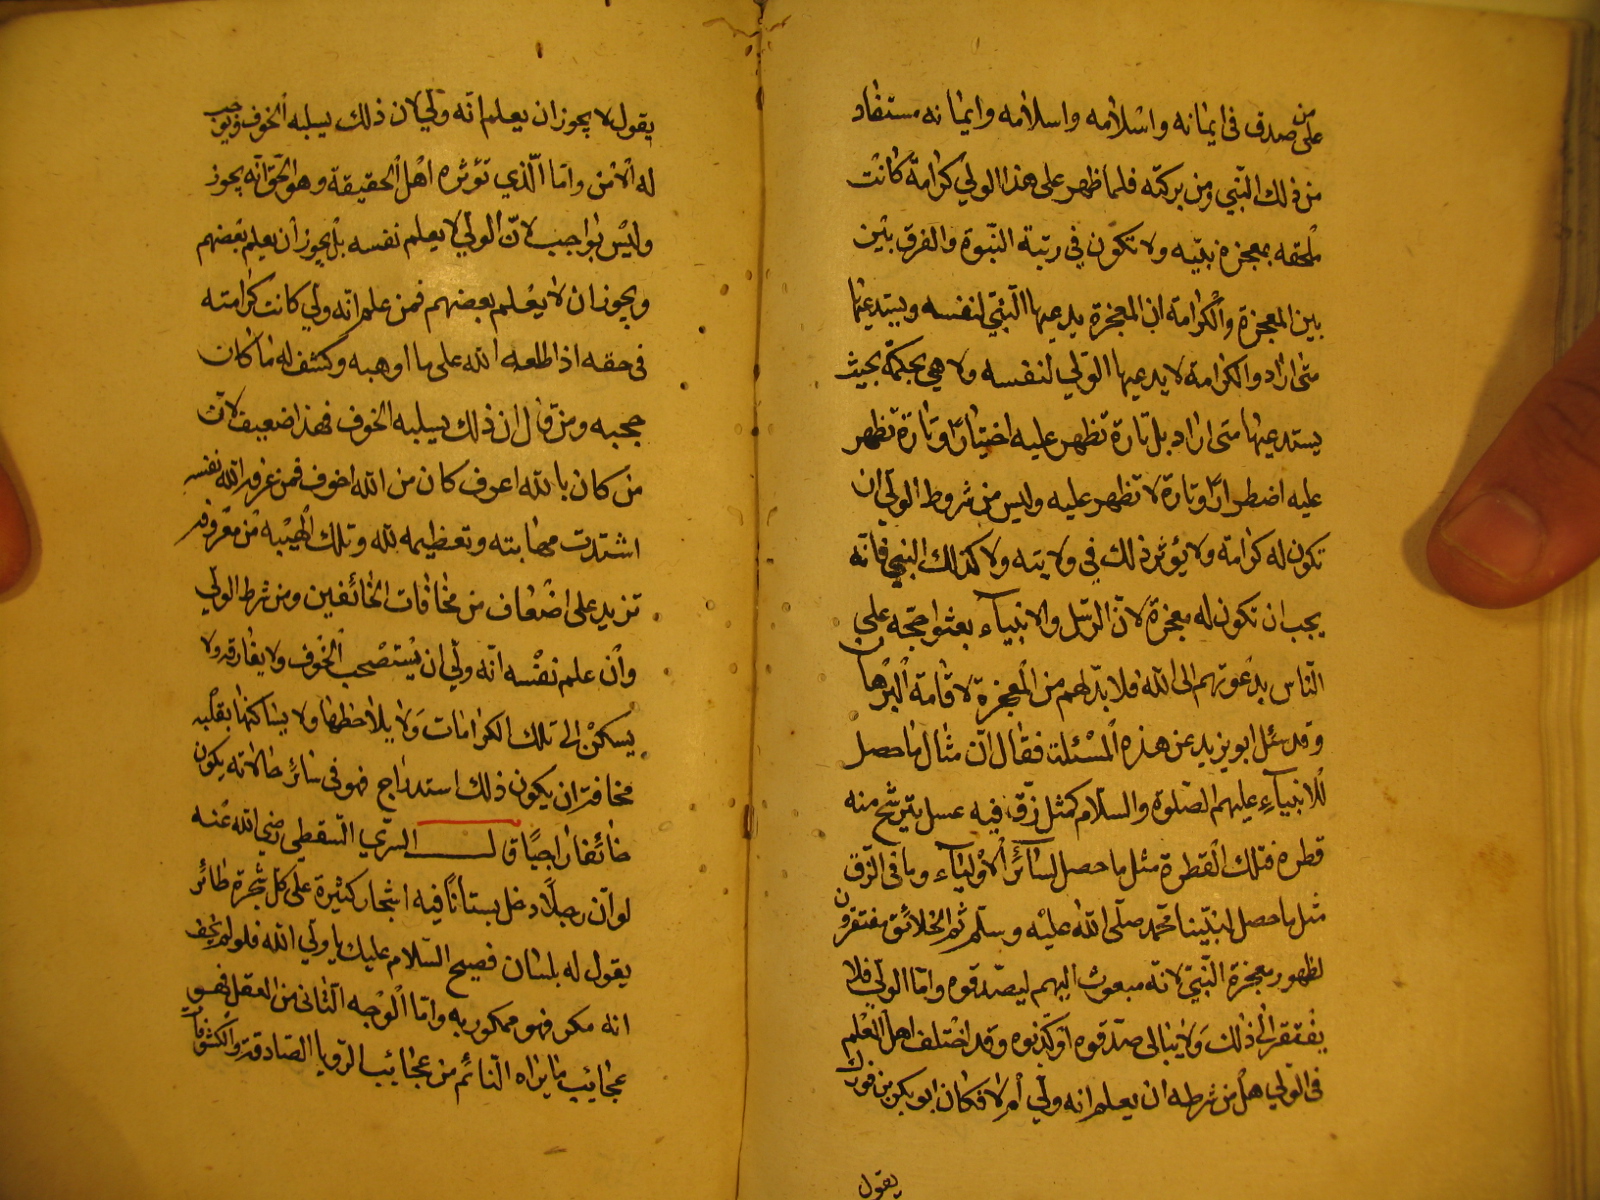 على من صدق فى ايمانه واسلامه واسلامه وايمانه مستفاد
من ذلك النّبي ومن بركته فلما ظهر على هذا الولي كرامة كانت
ملحقه بمعجزة نبيّه ولا تكون فى رتبة النّبوة والفرق بين
بين المعجزة والكرامة ان المعجزة يدعيها النّبي لنفسه ويستدعيها
متى اراد والكرامة لا يدعيها الولي لنفسه ولا هى بحكمه بحيث
يستدعيها متى اراد بل تارة تظهر عليه اختيارًا وتارة تظهر
عليه اضطرارًا وتارة لا تظهر عليه وليس من شروط الولّي ان
تكون له كرامة ولا يؤثر ذلك فى ولايته ولا كذلك النبي فانّه
يجب ان تكون له معجزة لانّ الرّسل والانبيآء بعثوا حجّه على
النّاس بدعوتهم الى الله فلا بدّ لهم من المعجزة لاقامة البرها ن
وقد سئل ابو يزيد عن هذه المسئلة فقال انّ مثال ما حصل
للانبيآءِ عليهم الصّلوة والسلام كمثل زقّ فيه عسل يترشح منه
قطره فتلك القطرة مثل ما حصل لسآئر الاوليآء وما فى الزّق
مثل ما حصل لنبيّنا محمّد صلّى اللّه عليه وسلّم ثم الخلائق مفتقرون
لظهور معجزة النّبيّ لانّه مبعوث اليهم ليصدقوه وامّا الولّي فلا
يفتقر الى ذلك ولا يبالى صدّقوه او كذبوه وقد اختلف اهل العلم
فى الولّي هل من شرطه ان يعلم انه ولّي ام لا فكان ابو بكر بن فورك
يقول
يقول لا يجوز ان يعلم انّه ولّي لان ذلك يسلبه الخوف ويوجب
له الامن وامّا الّذي تؤثره اهل الحقيقة وهو الحّق انّه يجوز
وليس بواجب لانّ الولّي لا يعلم نفسه بل يجوز ان يعلم بعضهم
ويجوز ان لا يعلم بعضهم فمن علم انّه ولّي كانت كرامته
فى حقه اذ اطلعه الله على ما اوهبه وكشف له ما كان
حجبه ومن قال ان ذلك يسلبه الخوف فهذا ضعيف لانّ
من كان باللّه اعرف كان من اللّه اخوف فمن عرفه اللّه نفسه
اشتدت مهابته وتعظيمه للّه وتلك الهيبه من معروفه
تزيد على اضعاف من مخافات الخائفين ومن شرط الولّي
وان علم نفسه انّه ولّي ان يستصحب الخوف ولا يفارقه ولا
يسكن الى تلك الكرامات ولا يلاحظها ولا يساكنها بقلبه
مخافة ان يكون ذلك استدراج فهو فى سائر حالاته يكون
خائفا راجيًا قال السّري السّقطي رضى اللّه عنه
لو انّ رجلًا دخل بستانًا فيه اشجار كثيرة على كل شجرة طائر
يقول له بلسان فصيح السّلام عليك يا ولّي اللّه فلو لم يخف
انه مكر فهو ممكور به وامّا الوجه الثانى من العقل فهو
عجائب ما يراه النّائم من عجائب الرّويا الصّادقة والكشوفات